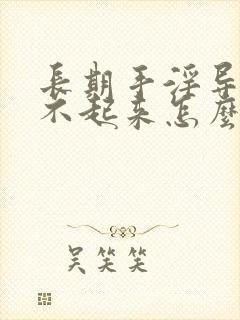 長期手淫导
不起来怎麼
吴笑笑